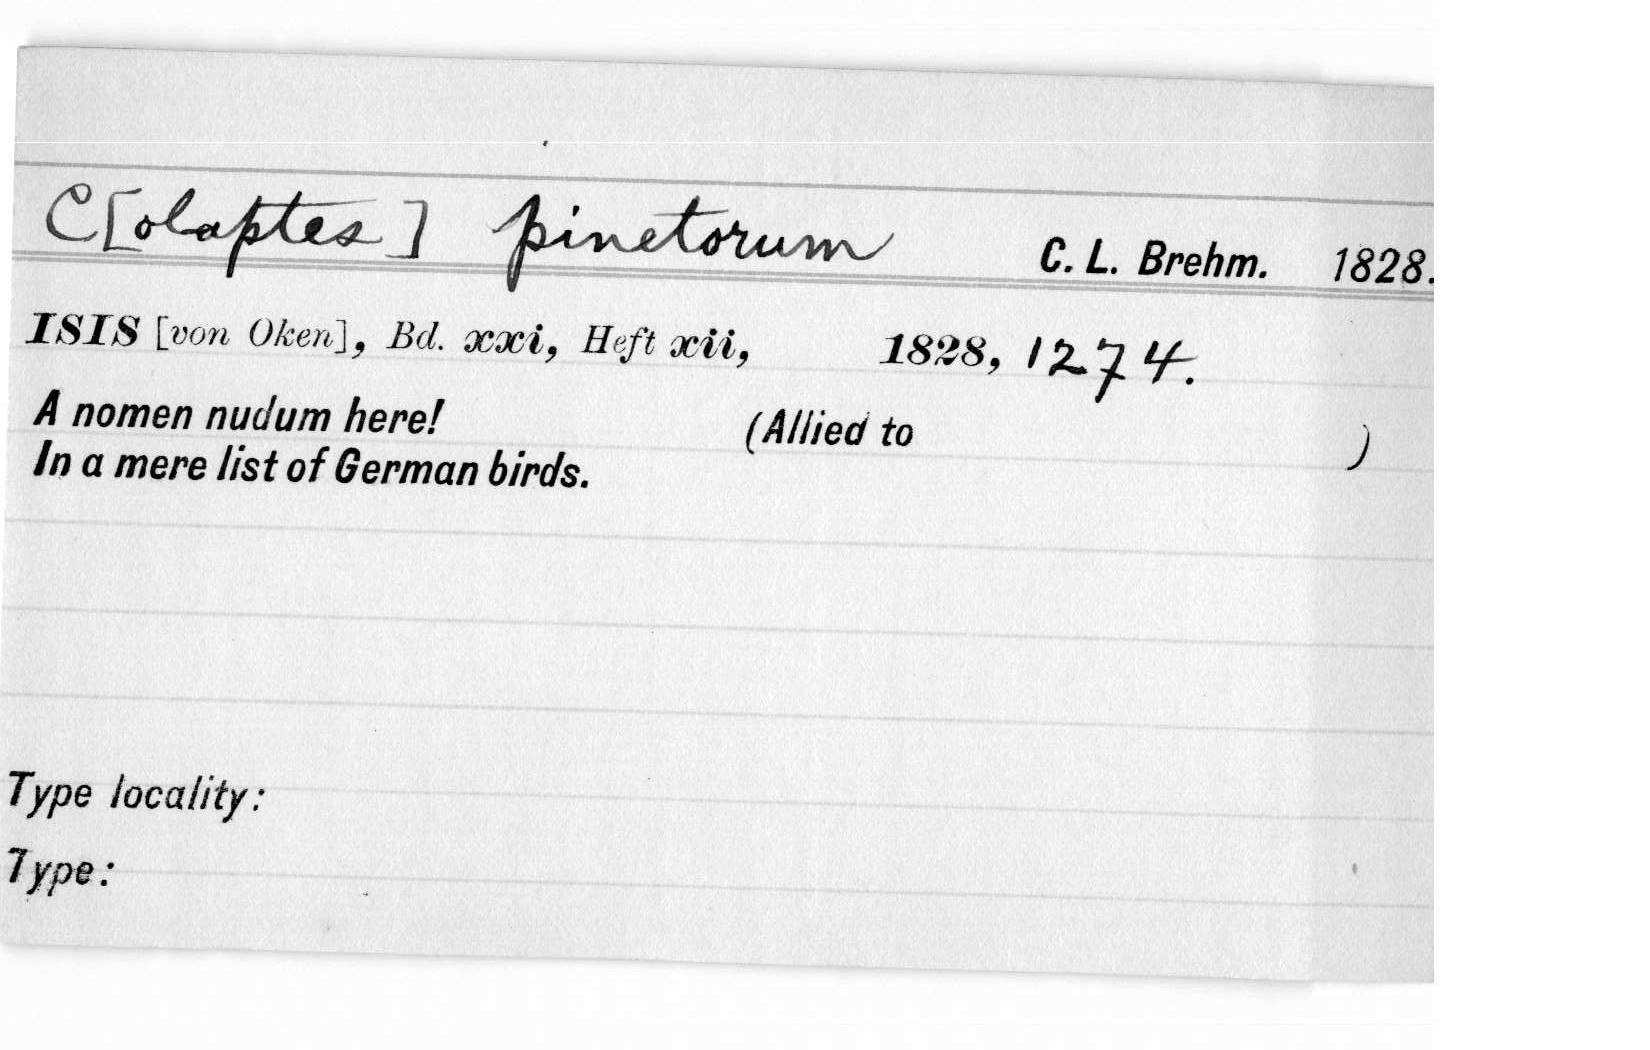 C[olaptes] pinetorum C. L. Brehm. 1828.
ISIS [von Oken], Bd. xxi, Heft xii, 1828, 1274.
A nomen nudum here! (Allied to )
In a mere list of German birds.
Type locality:
Type: